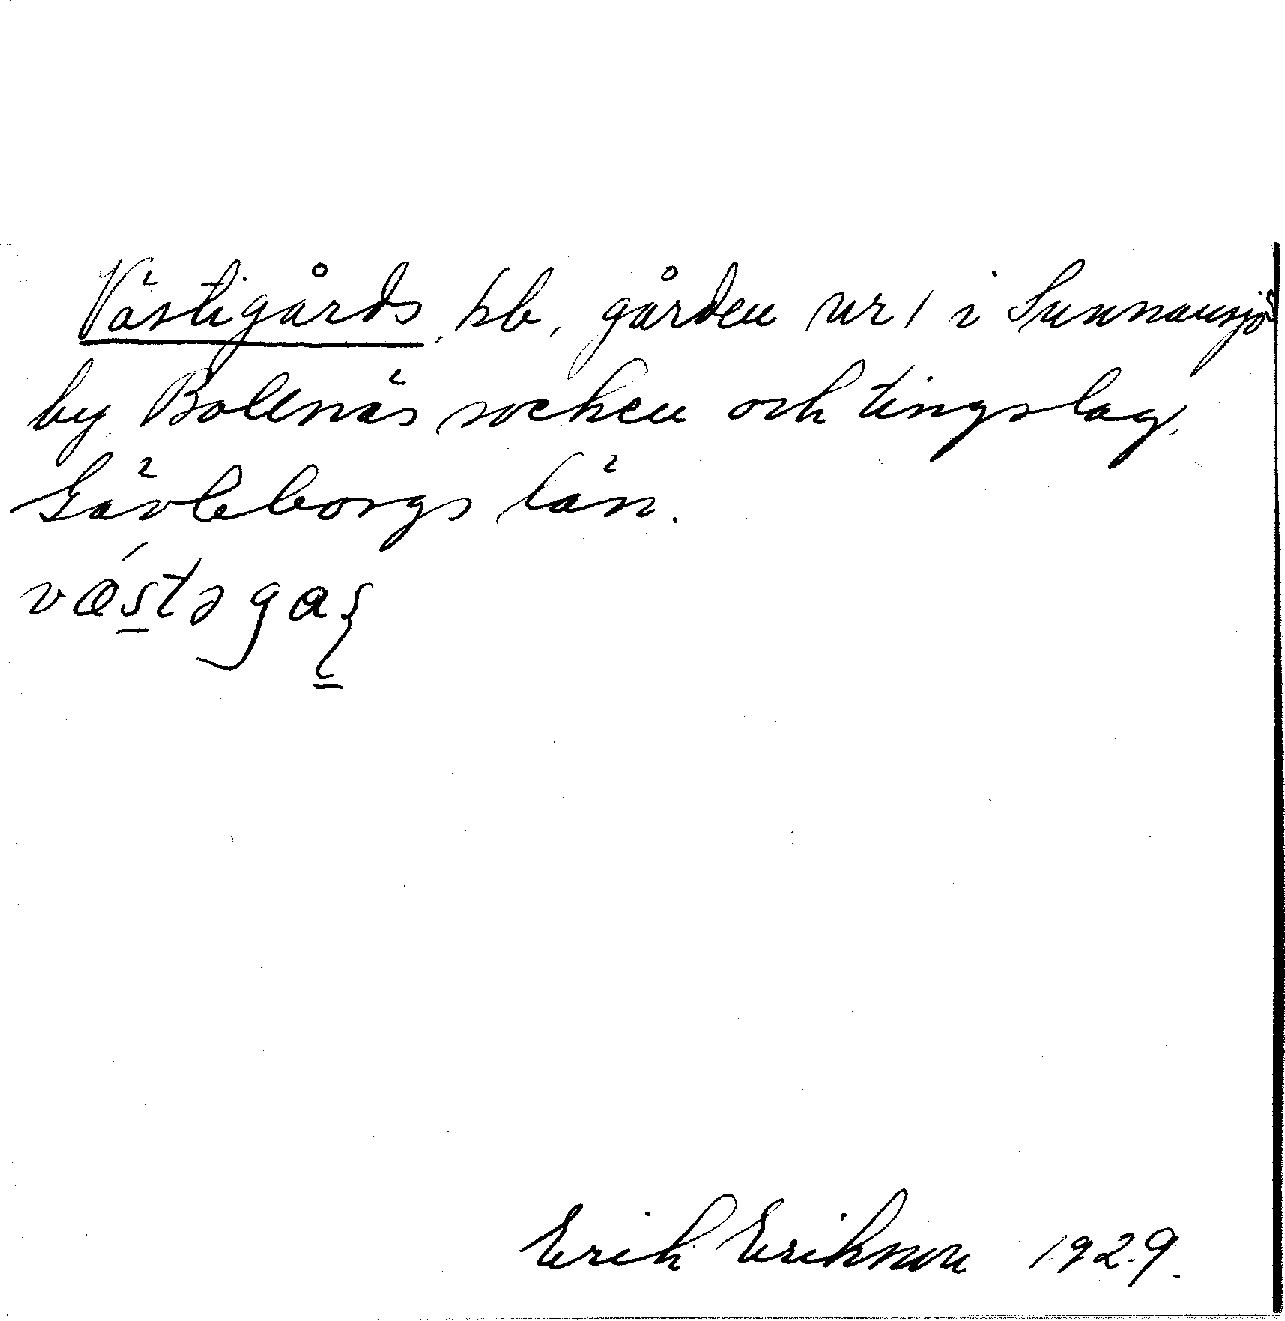 Västigårds, hb, gården nr 1 i Sunnansjö
by Bollnäs socken och tingslag,
Gävleborgs län.
væ̀stəgaʂ
Erik Erikson 1929.